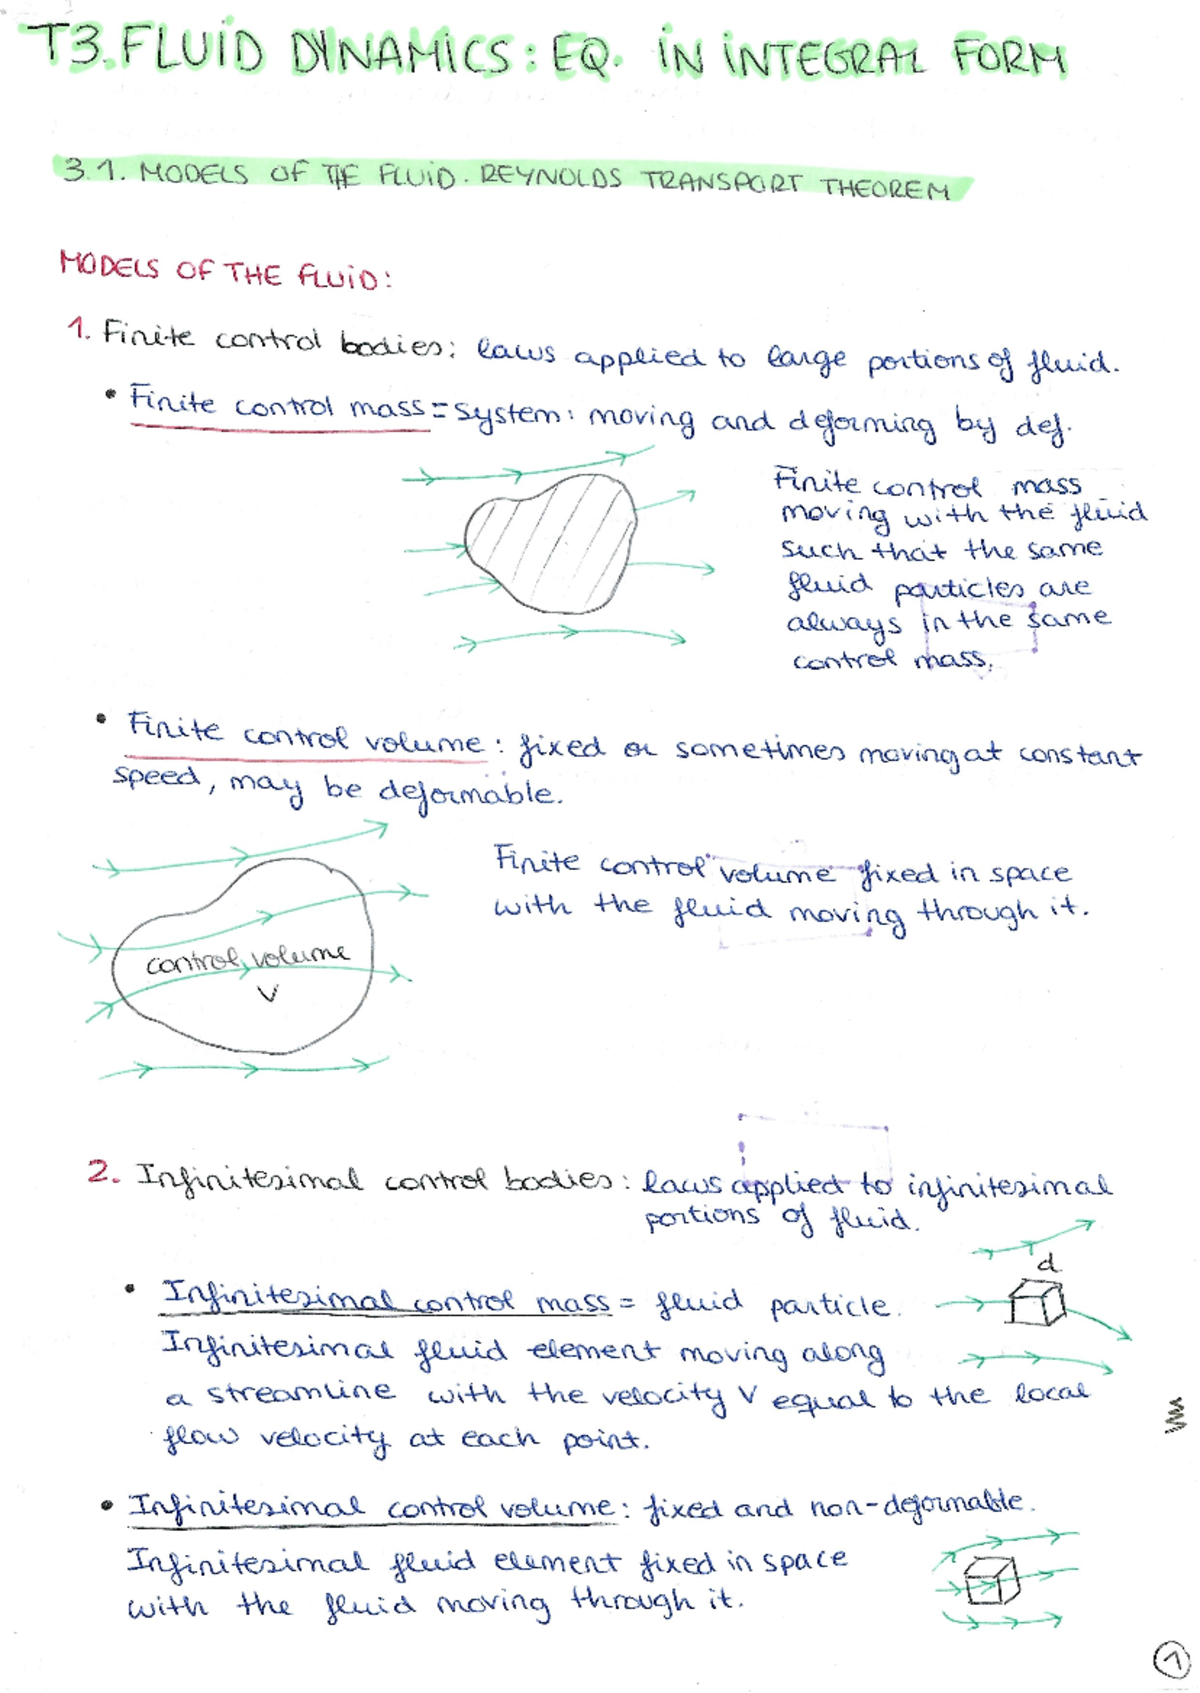 T3. FLUID DYNAMICS: EQ. IN INTEGRAL FORM
3.1. MODELS OF THE FLUID. REYNOLDS TRANSPORT THEOREM
MODELS OF THE FLUID:
1. Finite control bodies: laws applied to large portions of fluid.
• Finite control mass = system: moving and deforming by def.
Finite control mass
moving with the fluid
such that the same
fluid particles are
always in the same
control mass.
• Finite control volume: fixed or sometimes moving at constant
speed, may be deformable.
Finite control volume fixed in space
with the fluid moving through it.
control volume
V
2. Infinitesimal control bodies: laws applied to infinitesimal
portions of fluid.
d
• Infinitesimal control mass = fluid particle.
Infinitesimal fluid element moving along
a streamline with the velocity V equal to the local
flow velocity at each point.
• Infinitesimal control volume: fixed and non-deformable.
Infinitesimal fluid element fixed in space
with the fluid moving through it.
1